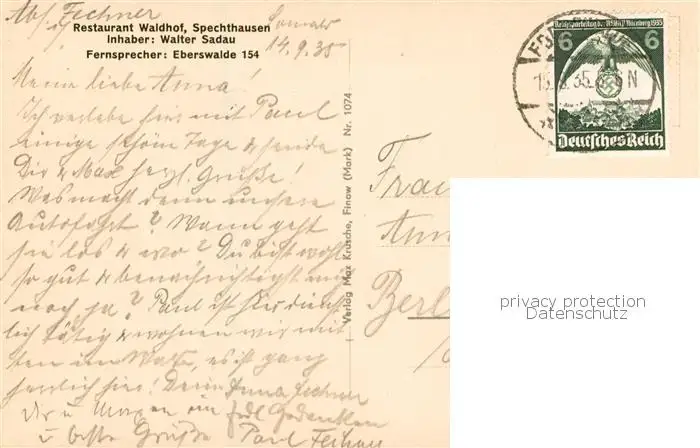 Abs. Fechner
14.9.35
Restaurant Waldhof, Spechthausen
Inhaber: Walter Sadau
Fernsprecher: Eberswalde 154
Meine liebe Anna!
Ich verlebe hier mit Paul
einige schöne Tage & sende
Dir & Max herzl. Grüße!
Was macht denn unsere
Autofahrt? Wann geht
sie los & wo? Du bist wohl
so gut & benachrichtigst mich
noch ja? Paul ist hier dienst-
lich tätig & wohnen wir mit
ten im Walde, es ist ganz
herrlich hier! Deine Anna Fechner
Dir u
u beste Grüße Paul Fechner
Verlag Max Krusche, Finow (Mark) Nr. 1074
Reichsparteitag der NSDAP Nürnberg 1935
6 6
Deutsches Reich
15.9.35
Frau
Anna
Berl
privacy protection
Datenschutz